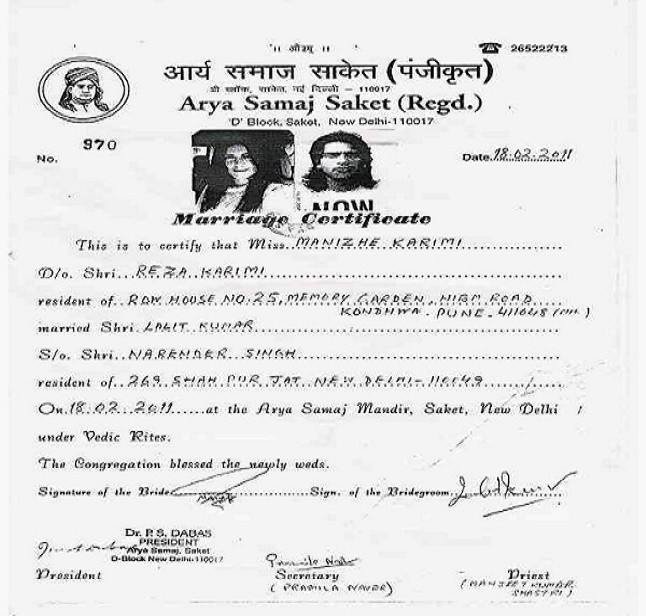 ।। ओ३म् ।।
☎ 26522213
आर्य समाज साकेत (पंजीकृत)
डी ब्लॉक, साकेत, नई दिल्ली - 110017
Arya Samaj Saket (Regd.)
'D' Block, Saket, New Delhi-110017
No. 970
Date 18.02.2011
NOW
Marriage Certificate
This is to certify that Miss MANIZHE KARIMI
D/o. Shri REZA KARIMI
resident of ROW HOUSE NO. 25, MEMORY GARDEN, NIBM ROAD
KONDHWA. PUNE. 411048 (MH)
married Shri LALIT KUMAR
S/o. Shri NARENDER SINGH
resident of 269 SHAH PUR JAT NEW DELHI-110049
On 18.02.2011 at the Arya Samaj Mandir, Saket, New Delhi
under Vedic Rites.
The Congregation blessed the newly weds.
Signature of the Bride Sign. of the Bridegroom
Dr. P. S. DABAS
PRESIDENT
Arya Samaj, Saket
D-Block New Delhi-110017
President Secretary Priest
(PRAMILA NAVDR) (MANJEET KUMAR
SHASTRI)